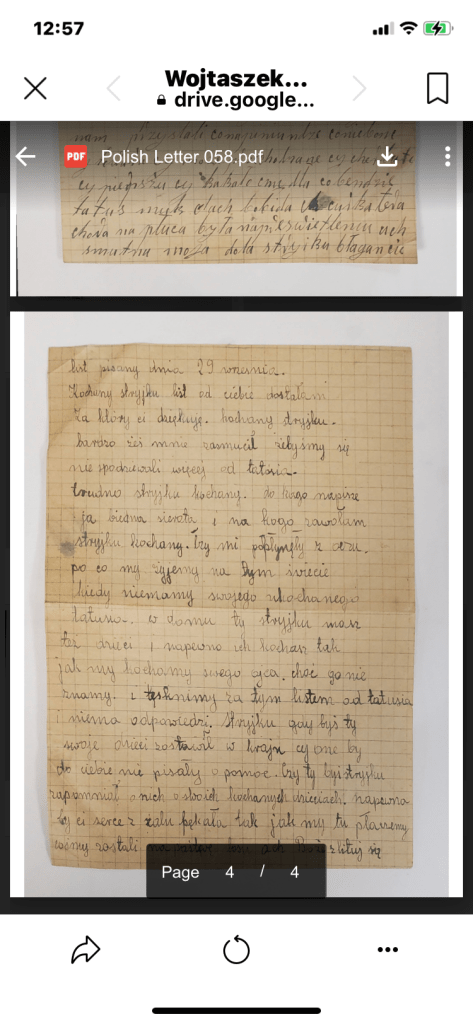 12:57
Wojtaszek...
drive.google...
Polish Letter.058.pdf
PDF
tatuś
chora na płuca była
smutna moja dola stryjku błagancie
list pisany dnia 29 wresnia.
Kochany stryjku list od ciebie dostałam
za który ci dziękuje. kochany stryjku.
bardzo żeś mnie zasmucił żebyśmy się
nie spodziewali więcej od tatusia.
trudno stryjku kochany. do kogo napisze
i ja biedna sierota i na kogo zawołam
stryjku kochany. łzy mi popłynęły z oczu.
po co my żyjemy na tym świecie
kiedy niemamy swojego ukochanego
tatusia. w domu ty stryjku masz
też dzieci i napewno ich kochasz tak
jak my kochamy swego ojca. choć go nie
znamy. i tęsknimy za tym listem od tatusia
i niema odpowiedzi. stryjku gdy byś ty
swoje dzieci zostawił w kraju cy one by
do ciebie nie pisały o pomoc. Czy ty byś stryjku
zapomniał o nich o swoich kochanych dzieciach. napewno
by ci serce z żalu pękała tak jak my tu płaczemy
zostali na ach Boże zlituj się
Page 4 / 4